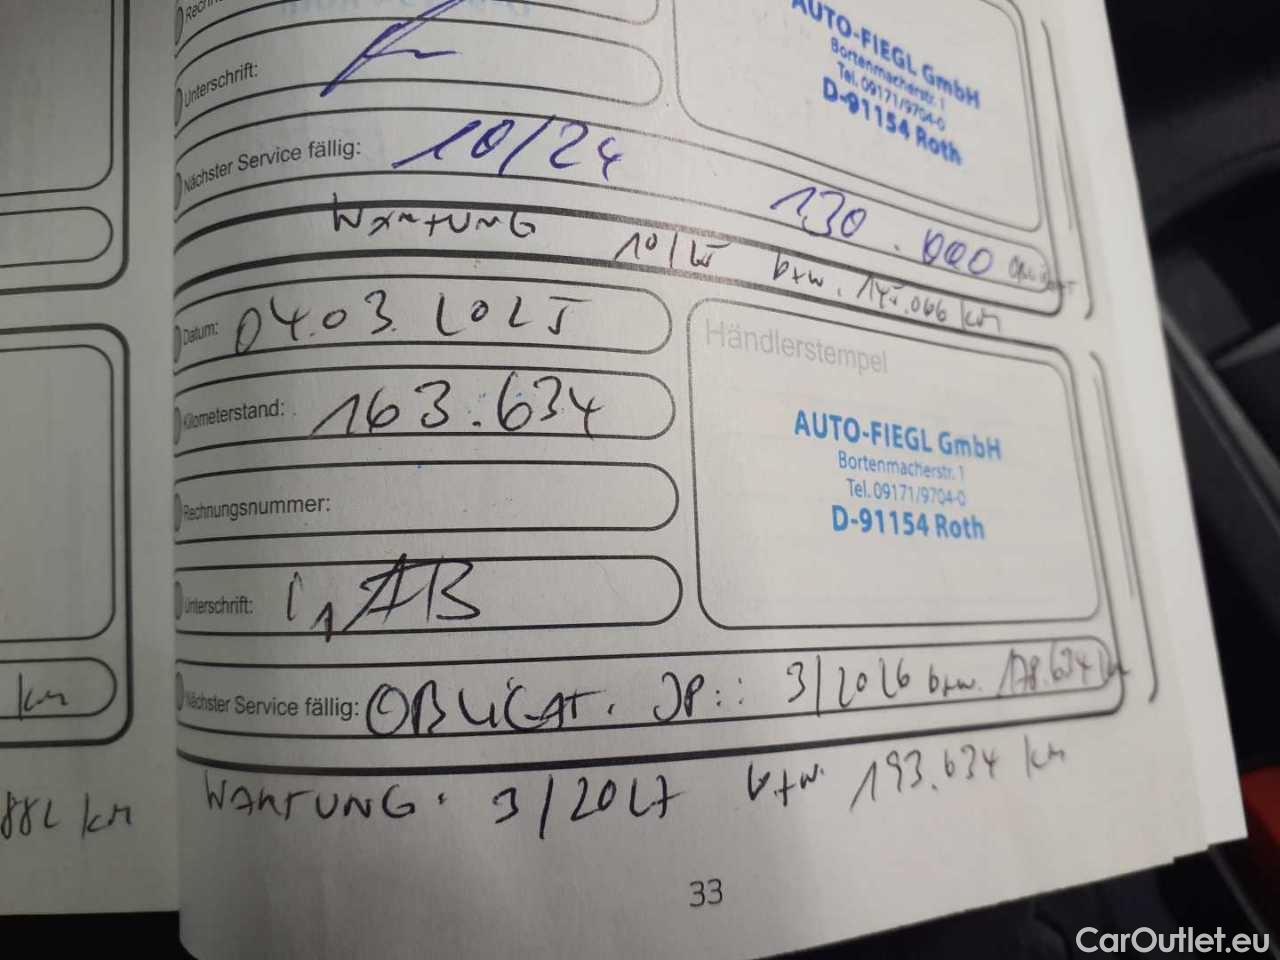 Rechn
AUTO-FIEGL GmbH
Bortenmacherstr. 1
Tel. 09171/9704-0
D-91154 Roth
Unterschrift:
Nächster Service fällig: 10/24 130.000
WARTUNG 10/25 bzw. 145.066 km
Datum: 04.03.2025
Händlerstempel
Kilometerstand: 163.634
AUTO-FIEGL GmbH
Bortenmacherstr. 1
Tel. 09171/9704-0
D-91154 Roth
Rechnungsnummer:
Unterschrift:
Nächster Service fällig: OBLIGAT. JP:: 3/2026 bzw. 178.634 km
WARTUNG: 3/2027 bzw. 193.634 km
km
882 km
33
CarOutlet.eu